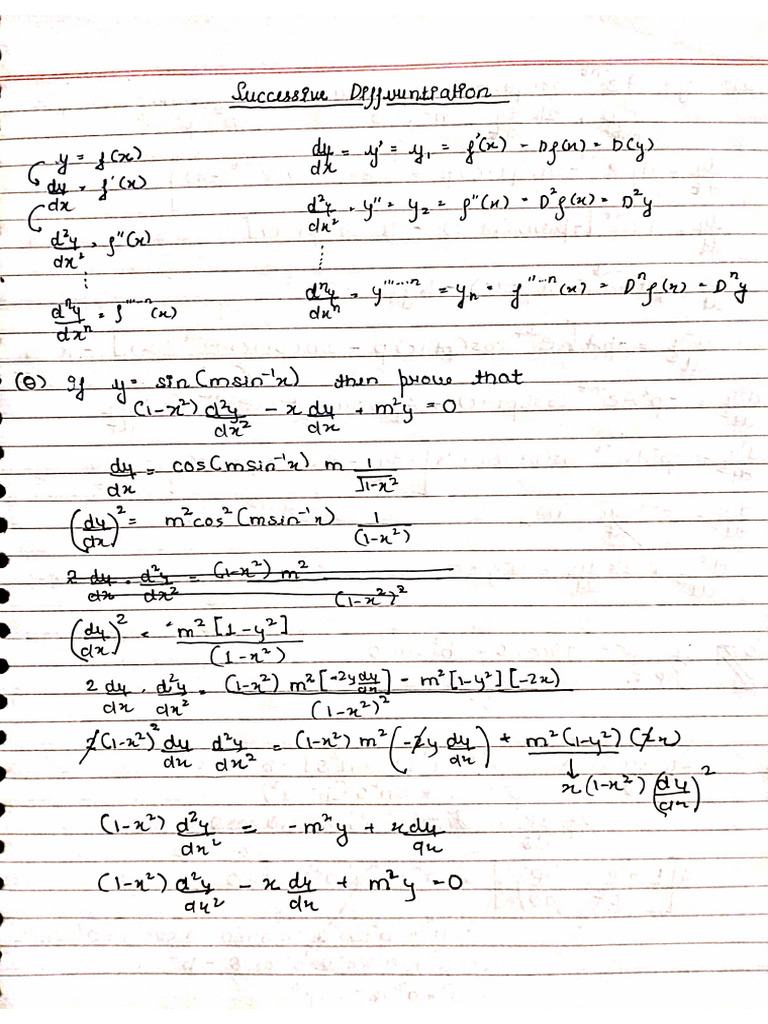 Successive Differentiation
y = f(x)
dy/dx = f'(x)
d²y/dx² = f''(x)
⋮
dⁿy/dxⁿ = f'''⋯n(x)
dy/dx = y' = y₁ = f'(x) = Df(x) = D(y)
d²y/dx² = y'' = y₂ = f''(x) = D²f(x) = D²y
⋮
dⁿy/dxⁿ = y''''⋯n = yₙ = f''⋯n(x) = Dⁿf(x) = Dⁿy
(Q) If y = sin(msin⁻¹x) then prove that
(1-x²) d²y/dx² - x dy/dx + m²y = 0
dy/dx = cos(msin⁻¹x) m 1/√1-x²
(dy/dx)² = m²cos²(msin⁻¹x) 1/(1-x²)
2 dy/dx · d²y/dx² = (1-x²) m²/(1-x²)²
(dy/dx)² = m²[1-y²]/(1-x²)
2 dy/dx · d²y/dx² = (1-x²) m²[-2y dy/dx] - m²[1-y²][-2x]/(1-x²)²
2(1-x²)² dy/dx d²y/dx² = (1-x²) m²(-2y dy/dx) + m²(1-y²)(2x)
↓
x(1-x²)(dy/dx)²
(1-x²) d²y/dx² = -m²y + x dy/dx
(1-x²) d²y/dx² - x dy/dx + m²y = 0